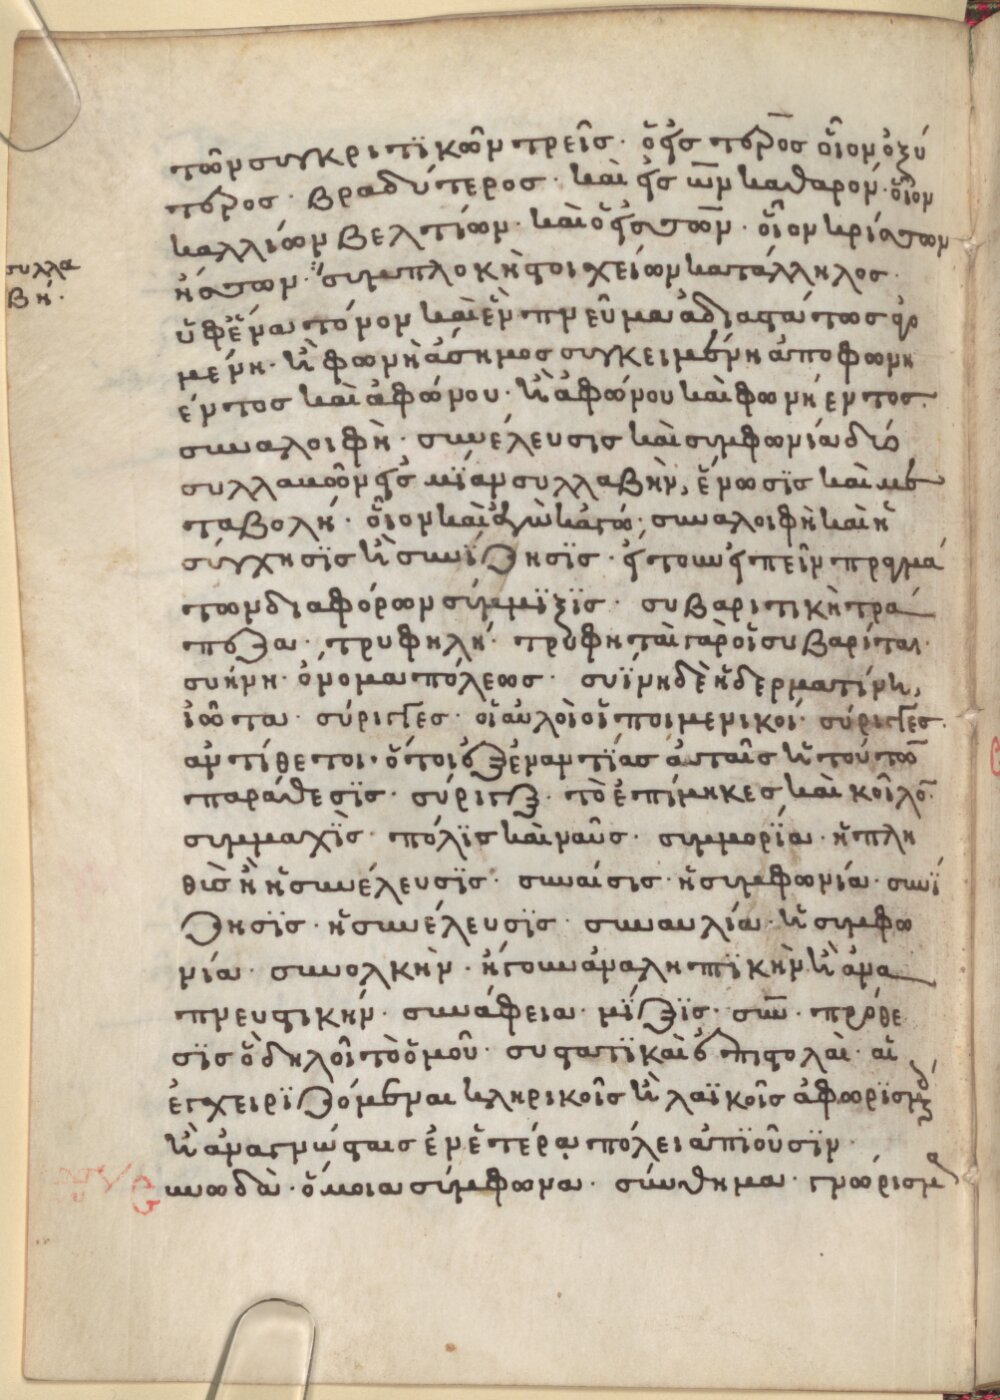 τῶν συγκριτϊκῶν τρεῖς· ὁ εἰς τερος οἷον ὀξύ
τερος· βραδύτερος· καὶ εἰς ων καθαρὸν· οἷον
καλλίων βελτίων· καὶ ὁ εἰς σσων· οἷον κρίσσων
ἥσσων· συμπλοκὴ στοιχείων κατάλληλος·
συλλα
βή·
ὑφὲν ἄτομον καὶ ἓν πνεῦμα ἀδιαστάτως
μένη· ἢ φωνὴ ἄσημος συγκειμένη ἀπο φωνη
έντος καὶ ἀφώνου· ἢ ἀφώνου καὶ φωνήεντος·
συναλοιφὴ· συνέλευσις καὶ συμφωνία δύο
συλλαβῶν εἰς μϊαν συλλαβὴν, ἕνωσϊς καὶ με
ταβολή· οἷον καὶ ἐγὼ κἀγώ· συναλοιφὴ καὶ ἡ
σύγχησϊς ἢ συνΐζησϊς· ἤτουν εἰπεῖν πραγμά
των διαφόρων σύμμϊξϊς· συβαριτικὴ τρά
πεζα· τρυφηλή· τρυφηταὶ γὰρ οἱ συβαρίται·
συήνη· ὄνομα πόλεως· συΐνη δὲ ἡ δερματίνη,
ἰῶτα· σύριγγες· οἱ αὐλοὶ οἱ ποιμενικοί· σύριγγες·
ἀντίθετοι· ὅτοι ἐξεναντΐας αὐταῖς ἢ τούτου
παράθεσϊς· σύριγξ· τὸ ἐπίμηκες καὶ κοῖλον·
συμμαχὶς· πόλϊς καὶ ναῦς· συμμορΐα· ἡ πλη
θὺς ἢ ἡ συνέλευσϊς· συναίσις· ἡ συμφωνία· συνΐ
ζησϊς· ἡ συνέλευσϊς· συναυλία· ἡ συμφω
νία· συνολκὴν· ἤγουν ἀναληπτϊκὴν ἢ ἀνα
πνευστικήν· συνάφεια· μϊξϊς· σὺν· πρόθε
σϊς ὃ δηλοῖ τὸ ὁμοῦ· συστατϊκαὶ ἐπιστολαὶ· αἱ
ἐγχειρϊζόμεναι κληρικοῖς ἢ λαϊκοῖς ἀφωρϊσμένοις
ἢ ἀναγνώσταις ἐν ἑτέρᾳ πόλει ἀπϊοῦσϊν·
συνωδὰ· ὅμοια σύμφωνα· σύνθημα· γνώρισμα